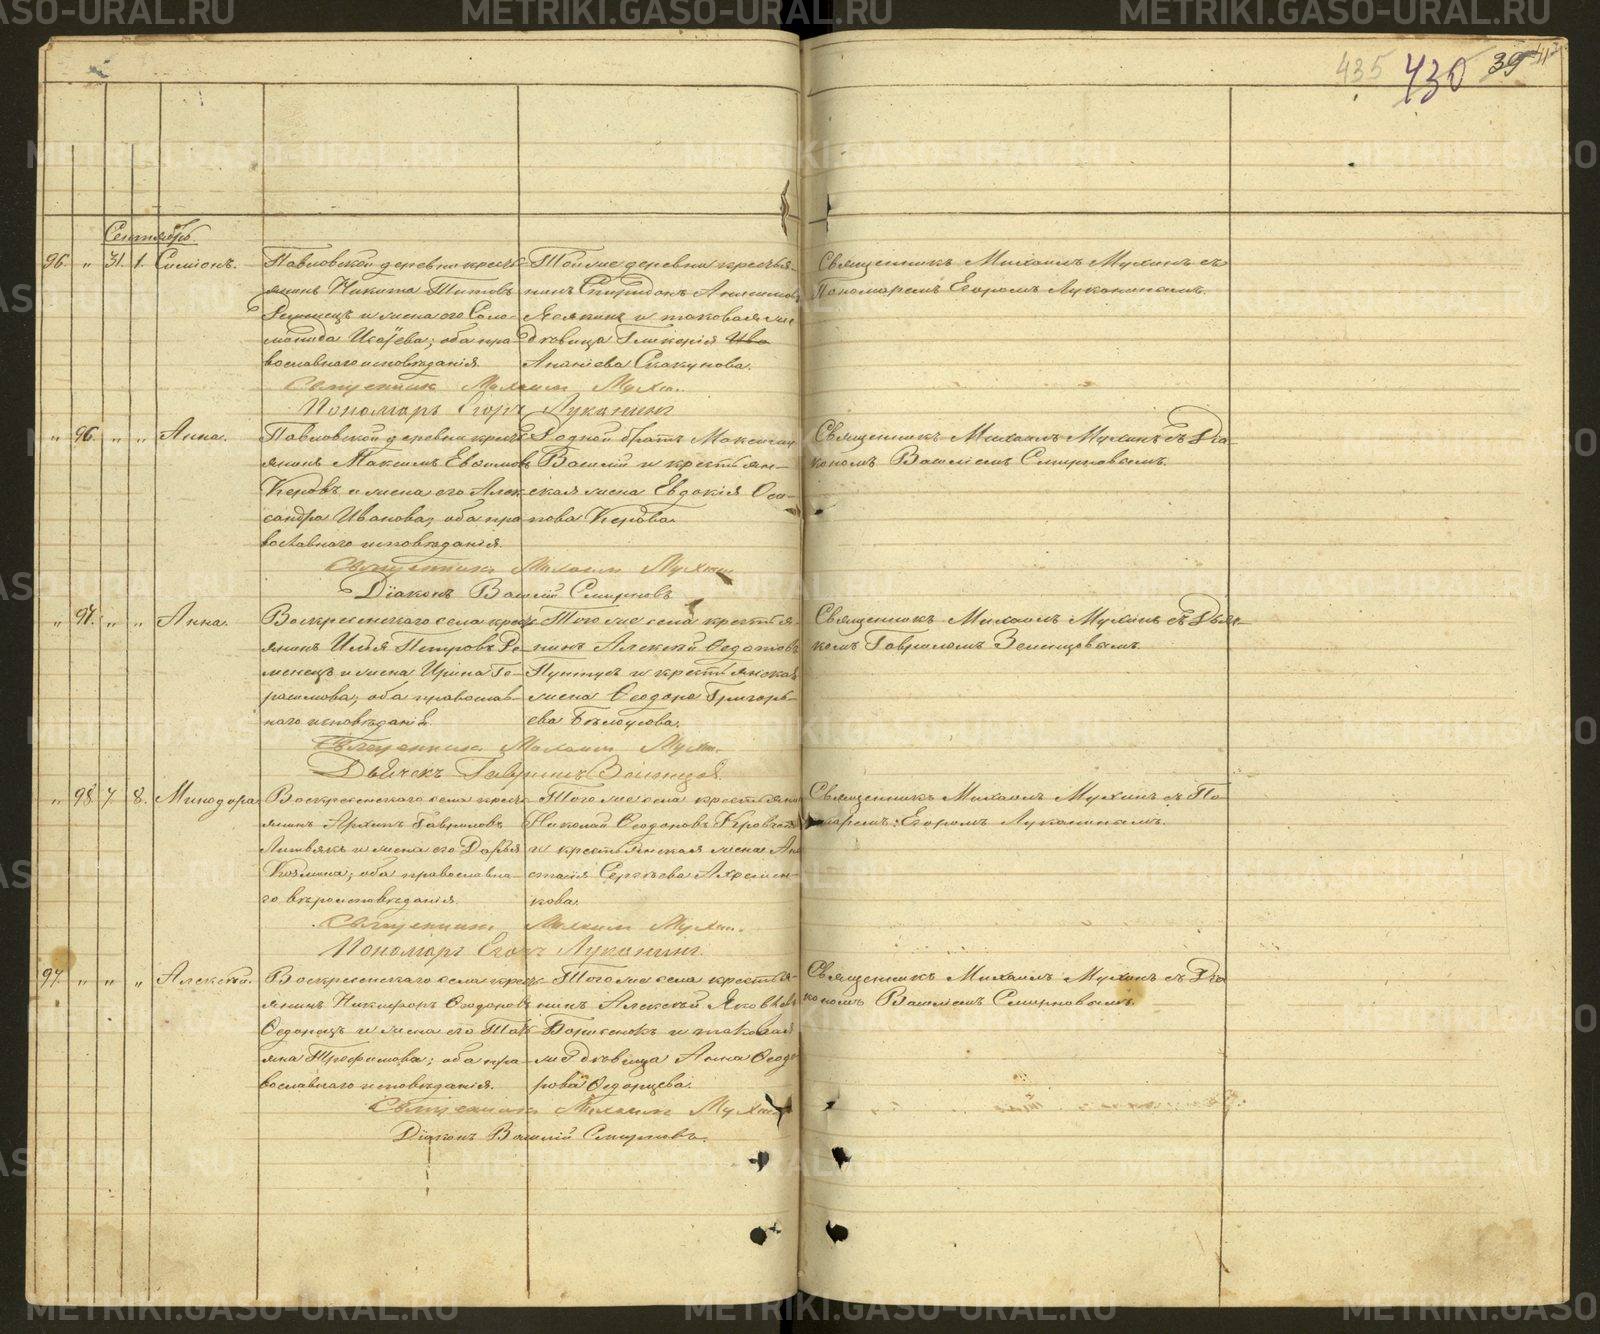 METRIKI.GASO-URAL.RU
435 430 39
Сентябрь.
96. „ 31. 1. Симіонъ.
Павловской деревни кресть-
янинъ Никита Титовъ
Ременецъ и жена его Соло-
монида Исаева; оба пра-
вославнаго исповѣданія.
Той же деревни крестья-
нинъ Спиридонъ
и таковая же
дѣвица Гликерія Ива
Ананіева Скакунова.
Священникъ Михаилъ Мухинъ съ
Пономаремъ Егоромъ Луканинымъ.
Священникъ Михаилъ Мухин.
Пономарь Егоръ Луканинъ
„ 96. „ „ Анна.
Павловской деревни кресть-
янинъ Максимъ Евфимовъ
Керовъ и жена его Алек-
сандра Иванова; оба пра-
вославнаго исповѣданія.
Родной братъ Максима
Василій и крестьян-
ская жена Евдокія Оси-
пова Керова.
Священникъ Михаилъ Мухинъ съ Діа-
кономъ Василіемъ Смирновымъ.
Священникъ Михаилъ Мухин
Діаконъ Василій Смирновъ
„ 97. „ „ Анна.
Воскресенскаго села кресть-
янинъ Илья Петровъ Ре-
менецъ и жена Ирина Ге-
расимова; оба православ-
наго исповѣданія.
Того же села крестья-
нинъ Алексѣй Ѳедотовъ
Пунтусъ и крестьянская
жена Ѳеодора Григорь-
ева Бѣлоусова.
Священникъ Михаилъ Мухинъ съ Дьяч-
комъ Гавриломъ Зеленцовымъ.
Священникъ Михаилъ Мухин.
Дьячекъ Гавриилъ Зеленцовъ.
„ 98. 7. 8. Минодора.
Воскресенскаго села кресть-
янинъ Архипъ Гавриловъ
Литвякъ и жена его Дарья
Козмина; оба православна-
го вѣроисповѣданія.
Того же села крестьянинъ
Николай Ѳеодоровъ
и крестьянская жена Ана-
стасія Сергѣева Ахремен-
кова.
Священникъ Михаилъ Мухинъ съ По-
номаремъ Егоромъ Луканинымъ.
Священникъ Михаилъ Мухин.
Пономарь Егоръ Луканинъ.
97. „ „ „ Алексѣй.
Воскресенскаго села кресть-
янинъ Никифоръ Ѳеодоровъ
Ѳедорецъ и жена его Тать-
яна Трофимова; оба пра-
вославнаго исповѣданія.
Того же села крестья-
нинъ Алексѣй Яковлевъ
и таковая
же дѣвица Анна Ѳеодо-
рова Ѳедорцева.
Священникъ Михаилъ Мухинъ съ Діа-
кономъ Василіемъ Смирновымъ.
Священникъ Михаилъ Мухин
Діаконъ Василій Смирновъ.